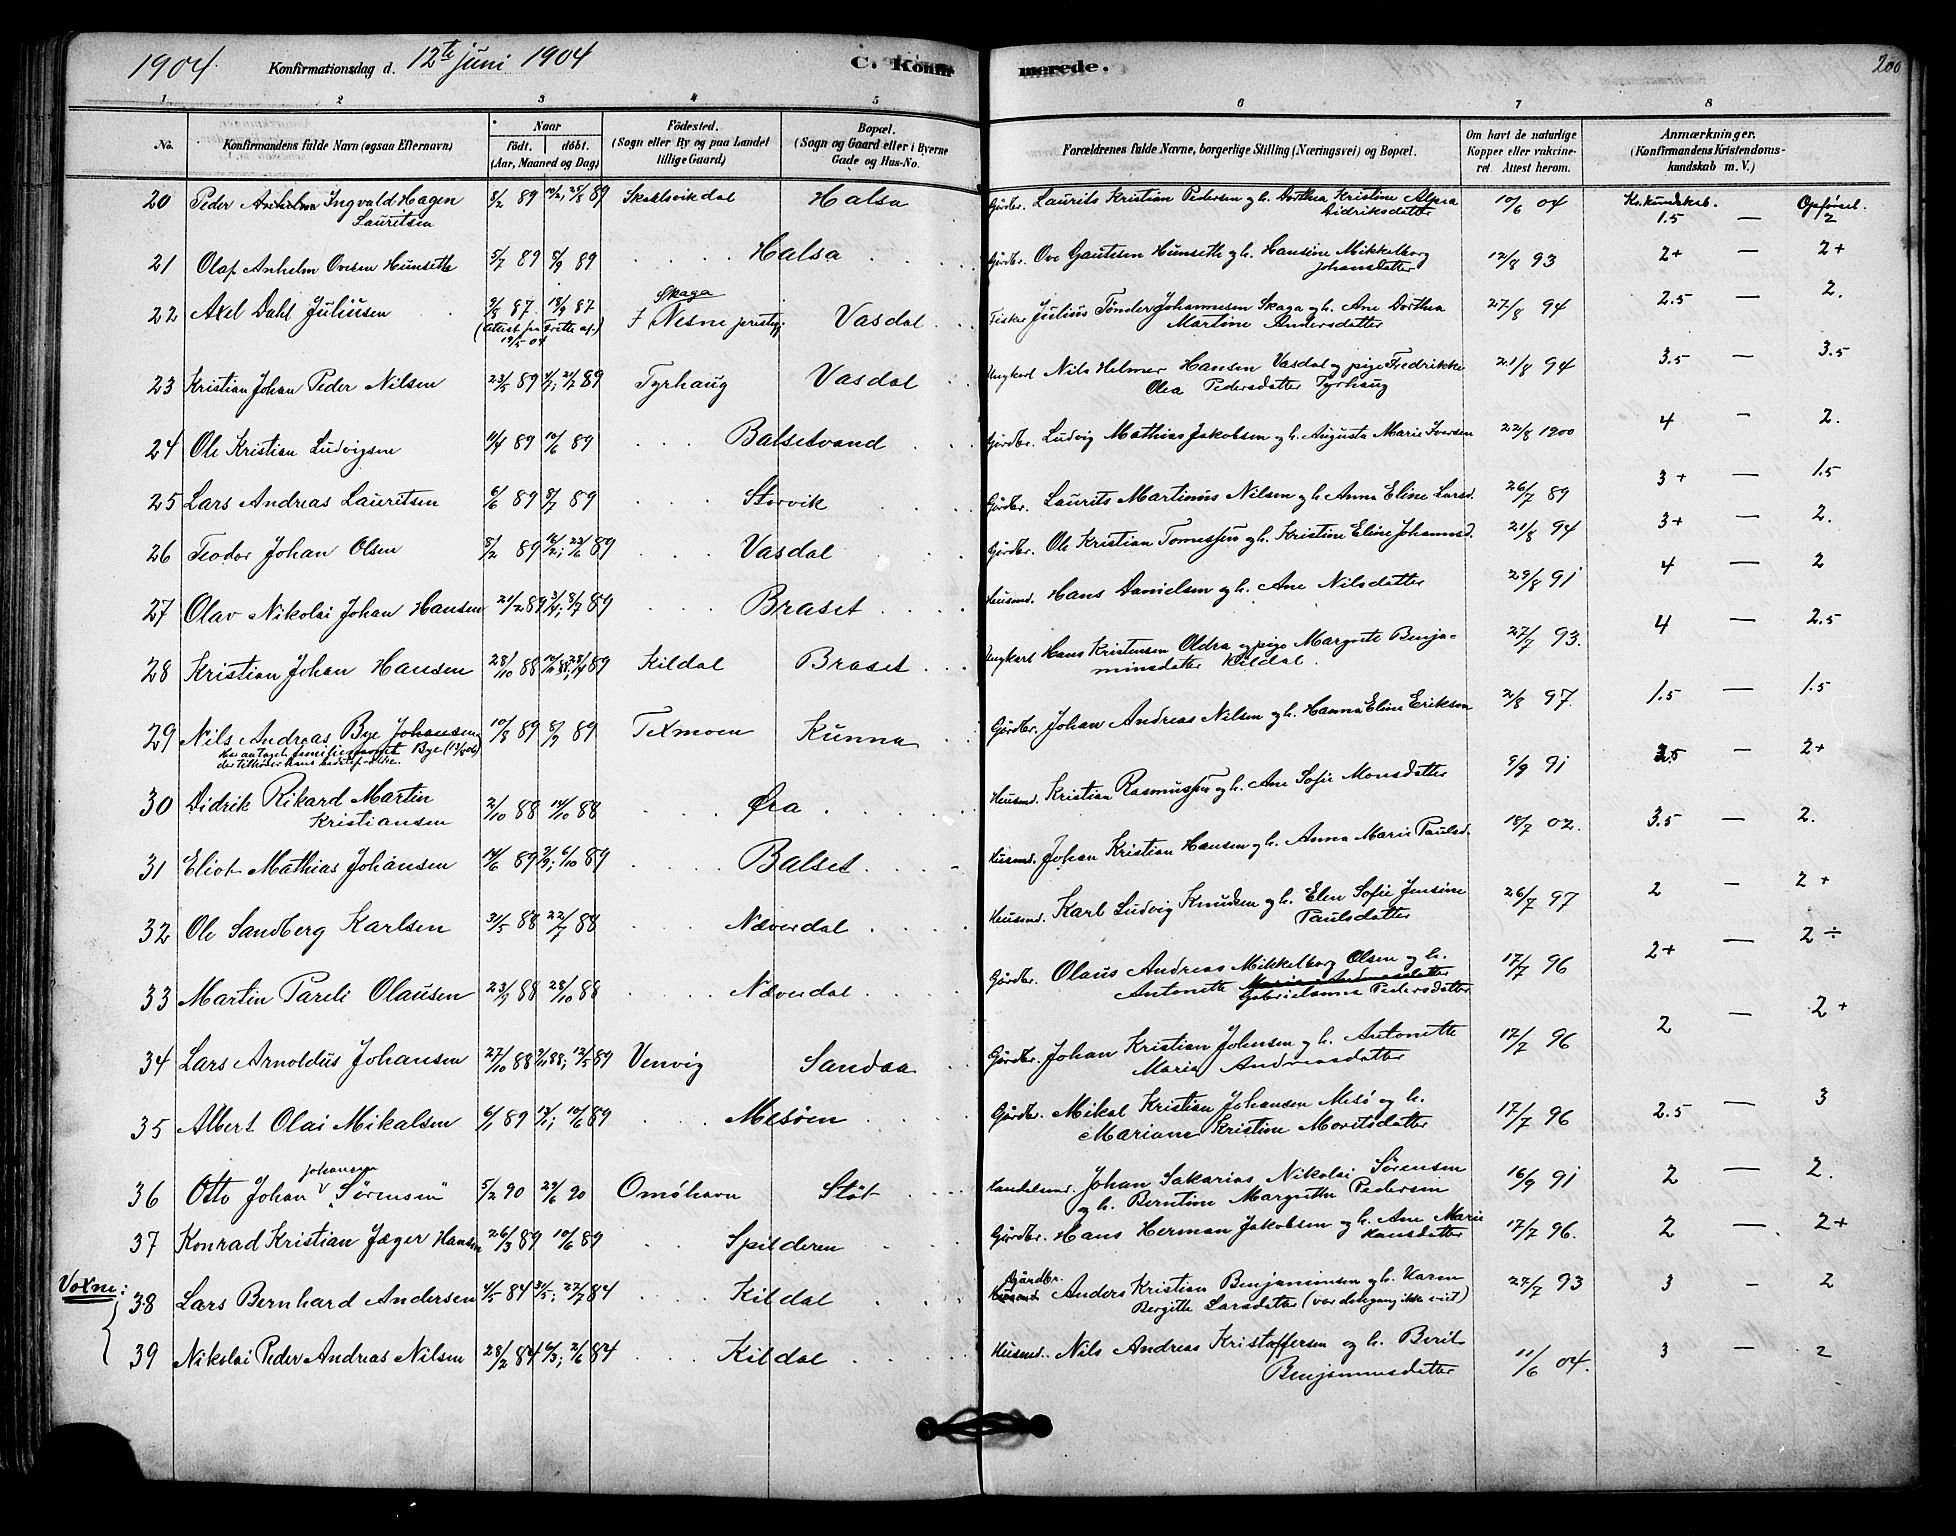 1904. Konfirmationsdag d. 12te juni 1904 C. Konfirmerede. 200
1 2 3 4 5 6 7 8
No. Konfirmandens fulde Navn (ogsaa Efternavn) Naar Födt. döbt. (Aar, Maaned og Dag) Födested. (Sogn eller By og paa Landet tillige Gaard) Bopæl. (Sogn og Gaard eller i Byerne Gade og Hus-No. Forældrenes fulde Navne, borgerlige Stilling (Næringsvei) og Bopæl. Om havt de naturlige Kopper eller vakcineret Attest herom. Anmærkninger, (Konfirmandens Kristendomskundskab m. V.)
Kr.kundskab. Opførsel.
20 Peder Anhelm Ingvald Hagen 8/2 89 25/8 89 Skaalsvikdal Halsa Gårdbr. Laurits Kristian Pedersen og h. Dorthea Kristine Alpea 10/6 04 1.5 — 2
Lauritsen Didriksdatter
21 Olaf Anhelm Ovesen Hunsette 5/7 89 8/9 89 Halsa Gårdbr. Ove Gautesen Hunseth og h. Hansine Mikkelborg 12/8 93 2+ — 2+
Johansdatter
22 Axel Dahl Juliusen 3/8 87 18/9 87 Skaga i Nesne prestgj. Vasdal Fisker Julius Tønder Johannesen Skaga og h. Ane Dorthea 27/8 94 2.5 — 2.
19/5 04 Martine Andersdatter
23 Kristian Johan Peder Nilsen 23/5 89 21/7 89 Tyrhaug Vasdal Ungkarl Nils Helmer Hansen Vasdal og pige Fredrikke 21/8 94 3.5 — 3.5
Olea Pedersdatter Tyrhaug
24 Ole Kristian Ludvigsen 11/4 89 10/6 89 Balsetvand Gårdbr. Ludvig Mathias Jakobsen og h. Augusta Marie Iversen 22/8 1900 4 — 2.
25 Lars Andreas Lauritsen 6/6 89 8/7 89 Storvik Gårdbr. Laurits Martinus Nilsen og h. Anna Eline Larsd. 26/7 89 3+ — 1.5
26 Teodor Johan Olsen 8/2 89 23/6 89 Vasdal Gårdbr. Ole Kristian Tomessen og h. Kristine Eline Johannesd. 21/8 94 3+ — 2.
27 Olav Nikolai Johan Hansen 21/2 89 3/4; 8/7 89 Braset Husmd. Hans Danielsen og h. Ane Nilsdatter 29/8 91 4 — 2
28 Kristian Johan Hansen 28/10 88 28/4 89 Kildal Braset Ungkarl Hans Kristensen Oldra og pige Margrete Benja- 27/7 93. 4 — 2.5
minsdatter Kildal.
29 Nils Andreas Bye Johansen 10/8 89 8/9 89 Texmoen Kunna Gårdbr. Johan Andreas Nilsen og h. Hanna Eline Eriksen 2/8 97. 1.5 — 1.5
Har antaget familienavnet Bye (13/8 06)
30 Didrik Rikard Martin 2/10 88 14/10 88 Øra Husmd. Kristian Rasmussen og h. Ane Sofie Monsdatter 9/9 91 2.5 — 2+
Kristiansen
31 Eliot Mathias Johansen 14/6 89 2/9; 6/10 89 Balset Husmd. Johan Kristian Hansen og h. Anna Marie Paulsd. 18/7 02. 3.5 — 2.
32 Ole Sandberg Karlsen 31/5 88 22/7 88 Næverdal Husmd. Karl Ludvig Knudsen og h. Elen Sofie Jensine 26/7 97 2 — 2+
Paulsdatter
33 Martin Pareli Olausen 23/9 88 28/10 88 Næverdal Gårdbr. Olaus Andreas Mikkelborg Olsen og h. 17/7 96 2+ — 2÷
Antonette Maria Andreasdatter Gabrielanna Pedersdatter
34 Lars Arnoldus Johansen 27/10 88 12/5 89 Venvig Sandaa Gårdbr. Johan Kristian Johnsen og h. Antonette 17/7 96 2 — 2+
Maria Andreasdatter
35 Albert Olai Mikalsen 6/1 89 10/6 89 Mesöen Gårdbr. Mikal Kristian Johansen Mesö og h. 17/7 96 2.5 — 3
Mariane Kristine Moritsdatter
36 Otto Johan Johansen "Sörensen" 5/2 90 29/6 90 Omöhavn Stöt Handelsmd. Johan Sakarias Nikolai Sörensen 16/9 91 2 — 2.
og h. Berntine Margrethe Pedersen
37 Konrad Kristian Jæger Hansen 26/3 89 10/6 89 Spilderen Gårdbr. Hans Herman Jakobsen og h. Ane Marie 17/7 96. 2 — 2+
Hansdatter
Voxne:
38 Lars Bernhard Andersen 4/5 84 31/5; 27/7 84 Kildal Gårdbr. Husmd. Anders Kristian Benjaminsen og h. Karen 27/7 93 3 — 2
Bergitte Larsdatter (var dengang ikke viet)
39 Nikolai Peder Andreas Nilsen 28/2 84 6/3; 2/6 84 Kildal Husmd. Nils Andreas Kristoffersen og h. Berit 11/6 04. 3 — 2
Benjaminsdatter